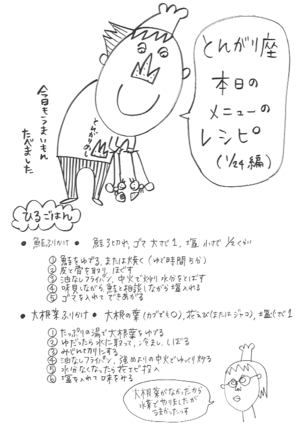 とんがり座
本日の
メニューの
レシピ
(1/24編)
今日もうまいもん
たべました
ひるごはん
● 鮭ふりかけ ● 鮭3ヒカケ、ゴマ 大サじ1、塩 小サじ 1/2くらい
① 鮭をゆでる、または焼く(ゆで時間5分)
② 皮と骨を取り、ほぐす
③ 油なしフライパン、中火で炒り水分をとばす
④ 味見しながら、鮭と相談しながら塩入れる
⑤ ゴマを入れて できあがる
● 大根葉ふりかけ ● 大根の葉(カブでも○)、花えび(またはジャコ)、塩小サじ1
① たっぷりの湯で大根葉をゆでる
② ゆだったら水に取って、冷まし、しぼる
③ みじん切りにする
④ 油なしフライパン、強めよりの中火でゆっくり炒る
⑤ 水分なくなったら花エビ投入
⑥ 塩を入れて味をみる
大根葉がなかったから
水菜でやりましたが
うまかったっす